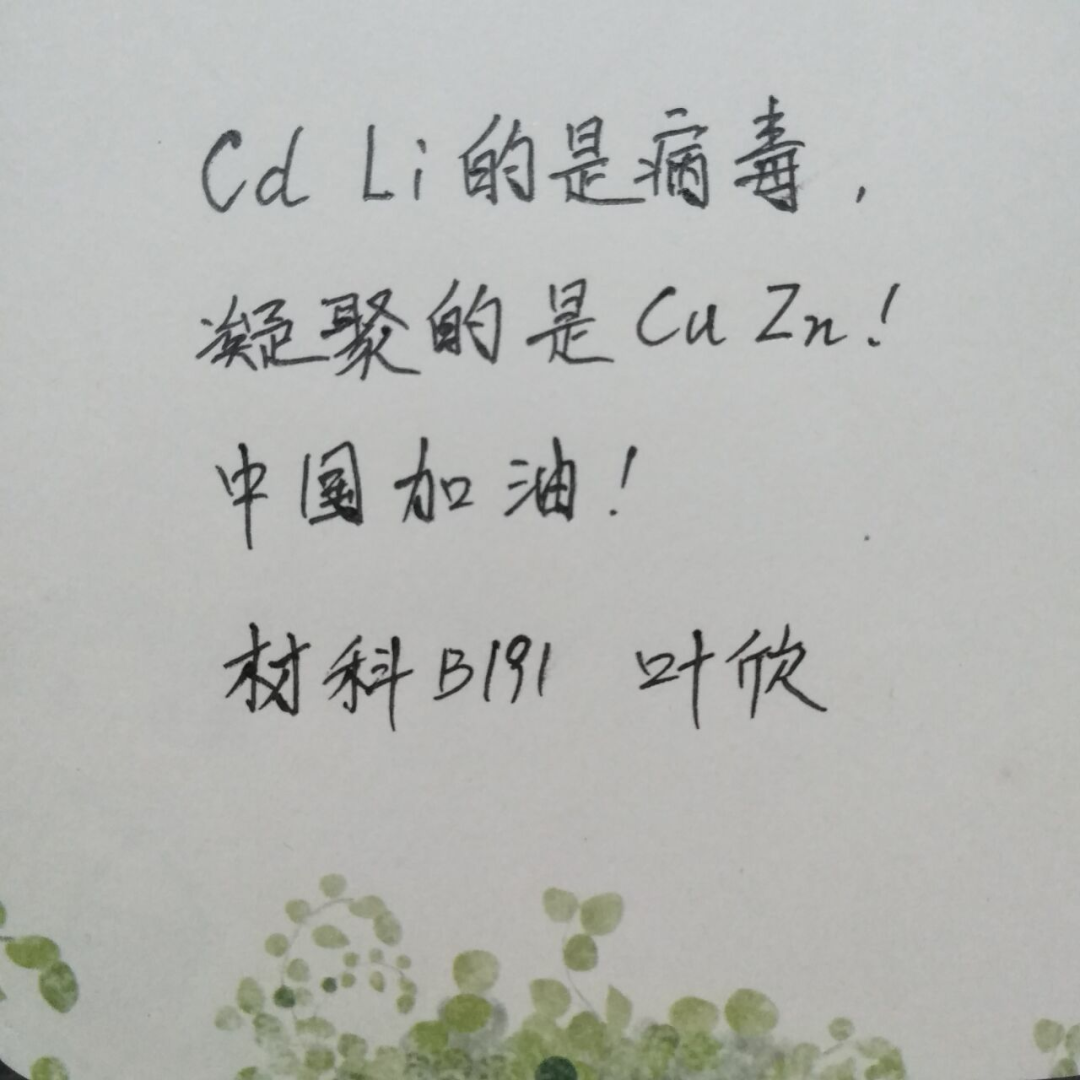 Cd Li的是病毒，
凝聚的是Cu Zn！
中国加油！
材料B191 叶欣